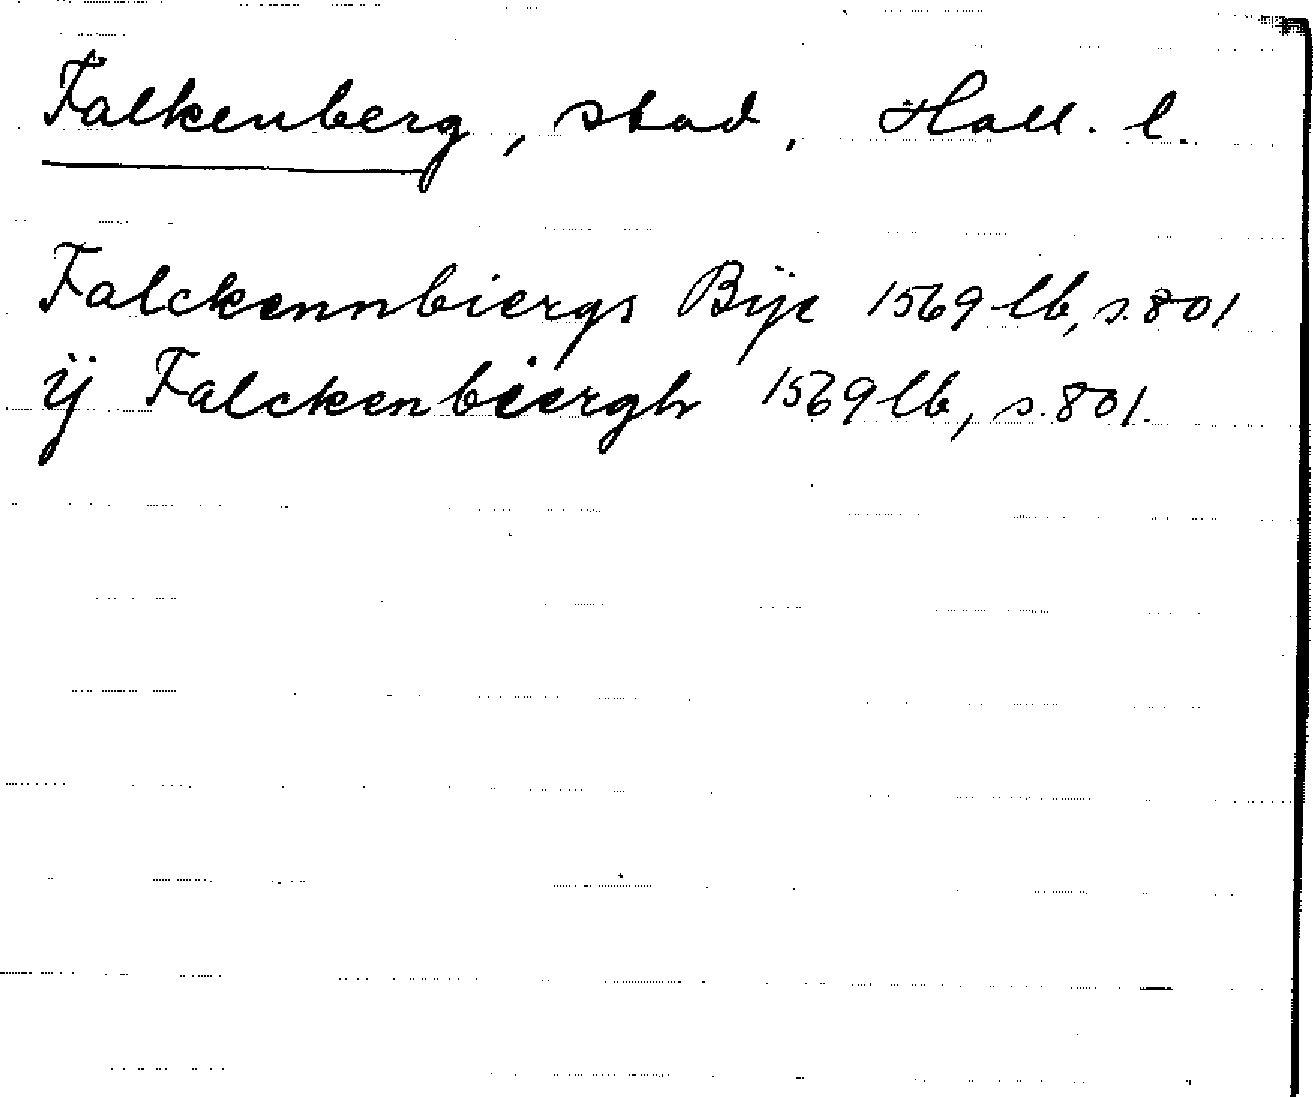 Falkenberg, stad, Hall. l.
Falckennbiergs Bÿe 1569 lb, s. 801
ÿ Falckenbiergh 1569 lb, s. 801.